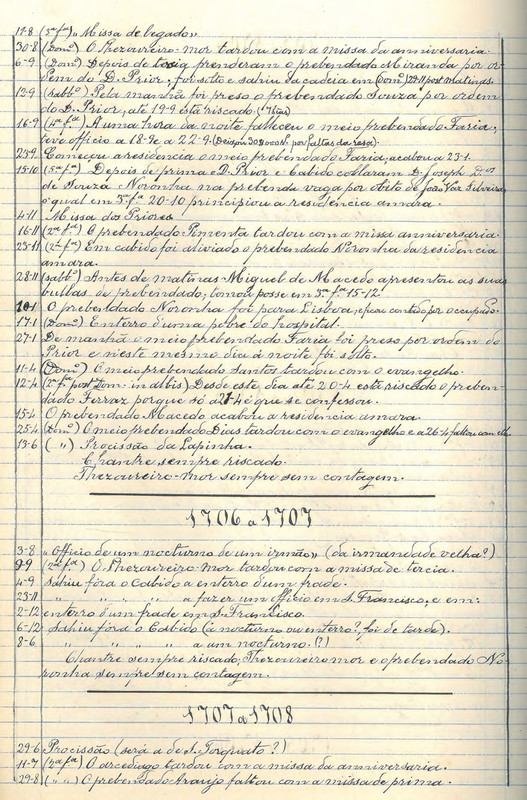 17-8 (5ª fª) "Missa de legado"
30-8 (Domº) O Thezoureiro-mor tardou com a missa da anniversaria.
6-9 (Domº) Depois de terça prenderam o prebendado Miranda por or-
dem do D. Prior, foi solto e sahiu da cadeia em (Domº) 29-11 post matinas.
12-9 (sabbº) Pela manhã foi preso o prebendado Souza por ordem
do D. Prior, até 19-9 está riscado.
16-9 (4ª fª) Á uma hora da noite falleceu o meio prebendado Faria,
teve officio a 18-9 e a 22-9. por faltas da resa).
23-9 Começou a residencia o meio prebendado Faria, acabou a 23-1.
15-10 (5ª fª) Depois de prima e D. Prior e Cabido collaram D. Joseph Luis
de Souza Noronha na prebenda vaga por obito de João Vaz Silveira,
o qual em 3ª fª 20-10 principiou a residencia amara.
4-11 Missa dos Priores
16-11 (2ª fª) O prebendado Pimenta tardou com a missa anniversaria.
23-11 (2ª fª) Em cabido foi aliviado o prebendado Noronha da residencia
amara.
28-11 (sabbº) Antes de matinas Miguel de Macedo apresentou as suas
bullas de prebendado; tomou posse em 3ª fª 15-12.
10-1 O prebendado Noronha foi para Lisboa, e ficou contado por occupado.
17-1 (Domº) Enterro d'uma pobre do hospital.
27-1 De manhã o meio prebendado Faria foi preso por ordem do
Prior e n'este mesmo dia á noite foi solto.
11-4 (Domº) O meio prebendado Santos tardou com o evangelho.
12-4 (2ª fª post Dom. in albis) Desde este dia até 20-4 está riscado o preben-
dado Ferraz porque só a 21-4 é que se confessou.
15-4 O prebendado Macedo acabou a residencia amara.
25-4 (Domº) O meio prebendado Dias tardou com o evangelho e a 26-4 faltou com elle.
13-6 ( " ) Procissão da Lapinha.
Chantre sempre riscado.
Thezoureiro-mor sempre sem contagem.
1706 a 1707
3-8 "Officio de um nocturno de um irmão" (da irmandade velha?)
9-9 (2ª fª) O Thezoureiro mor tardou com a missa de tercia.
4-9 Sahiu fóra o Cabido a enterro d'um frade.
23-11 " " " " a fazer um officio em S. Francisco, e em:
2-12 enterro d'um frade em S. Francisco.
6-12 Sahiu fóra o Cabido (a nocturno ou enterro?, foi de tarde).
8-6 " " " " a um nocturno. (?)
Chantre sempre riscado, Thezoureiro mor e o prebendado No-
ronha sempre sem contagem.
1707 a 1708
29-6 Procissão (será a de S. Torquato?)
11-7 (2ª fª) O arcediago tardou com a missa da anniversaria.
29-8 ( " " ) O prebendado Araujo faltou com a missa de prima.